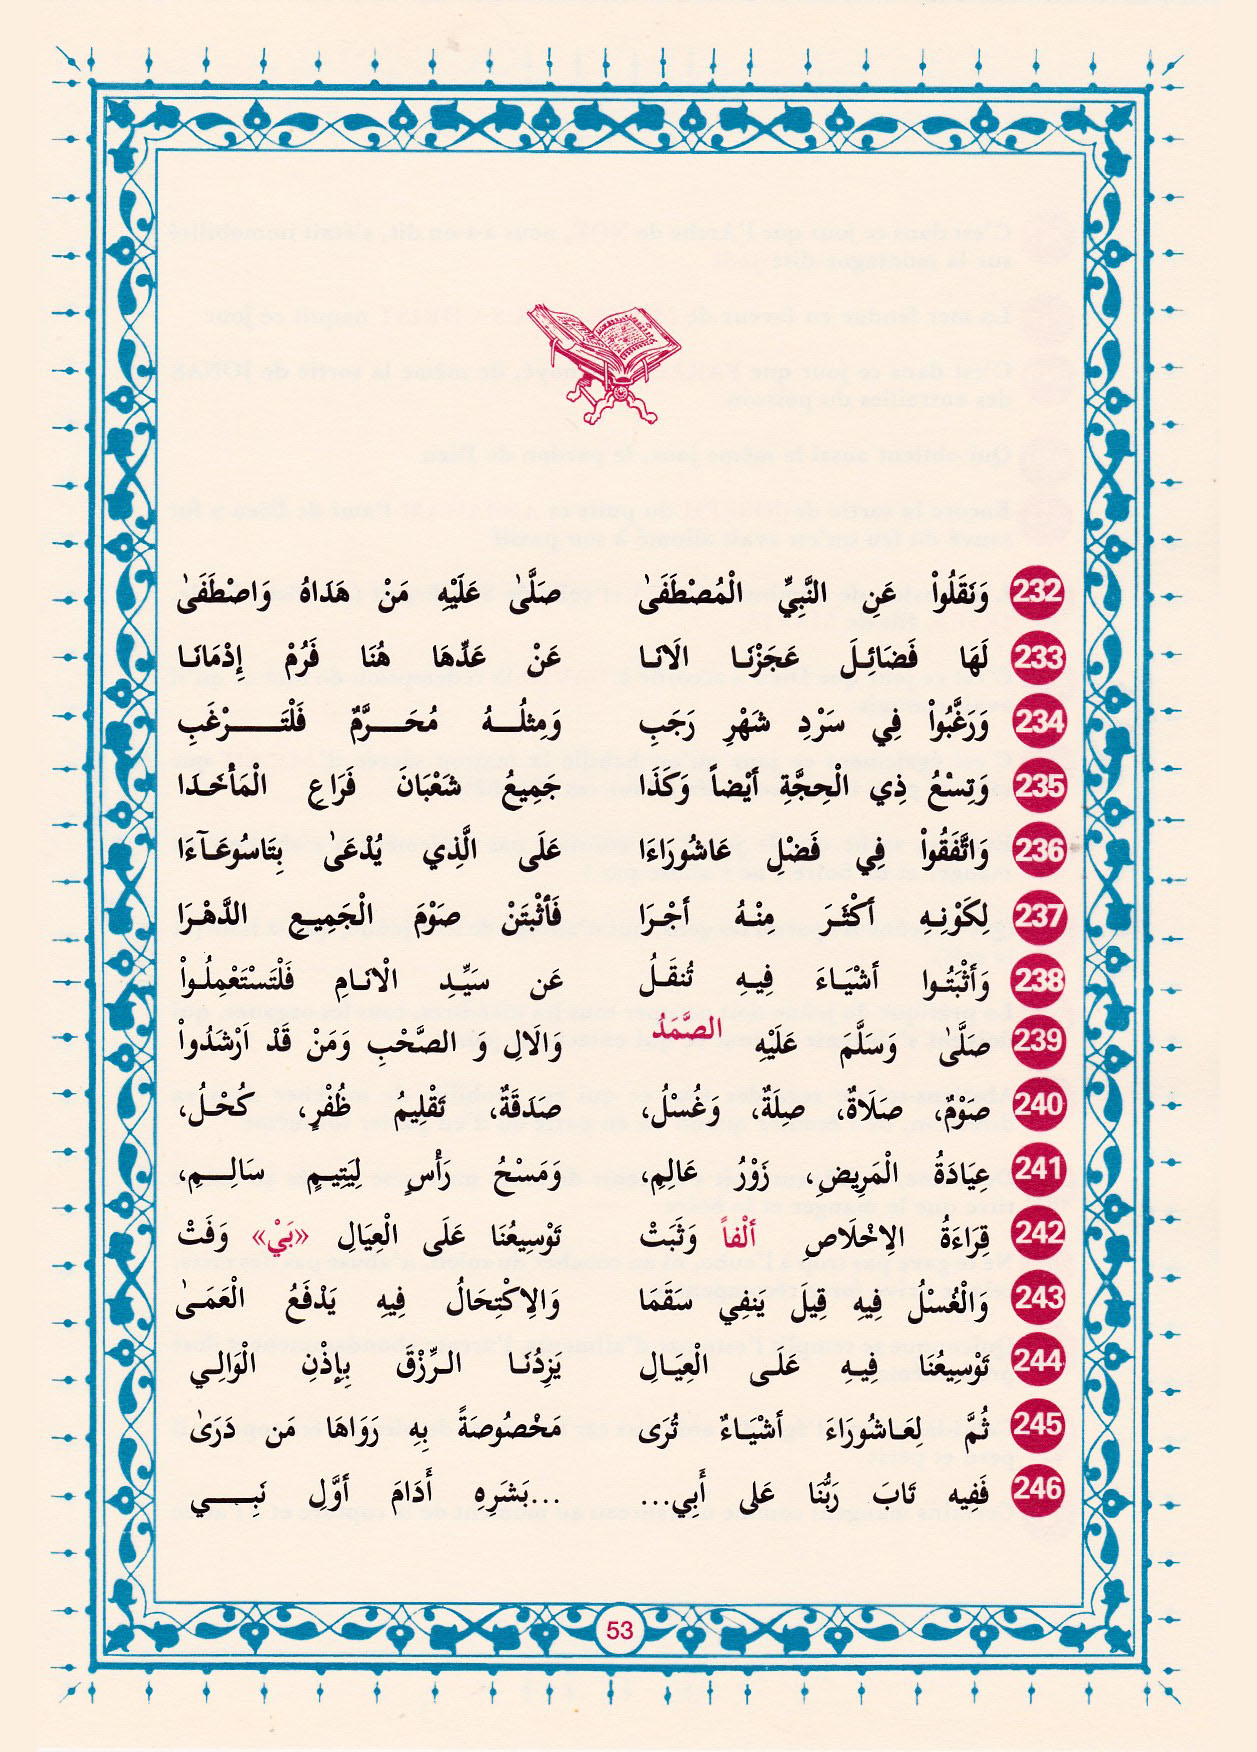 232 وَنَقَلُواْ عَنِ النَّبِيِّ الْمُصْطَفَىٰ صَلَّىٰ عَلَيْهِ مَنْ هَدَاهُ وَاصْطَفَىٰ
233 لَهَا فَضَائِلَ عَجَزْنَا الَانَا عَنْ عَدِّهَا هُنَا فَرُمْ إِدْمَانَا
234 وَرَغَّبُواْ فِي سَرْدِ شَهْرِ رَجَبِ وَمِثْلُهُ مُحَرَّمٌ فَلْتَرْغَبِ
235 وَتِسْعُ ذِي الْحِجَّةِ أَيْضاً وَكَذَا جَمِيعُ شَعْبَانَ فَرَاعِ الْمَأْخَذَا
236 وَاتَّفَقُواْ فِي فَضْلِ عَاشُورَاءَا عَلَى الَّذِي يُدْعَىٰ بِتَاسُوعَآءَا
237 لِكَوْنِهِ أَكْثَرَ مِنْهُ أَجْرَا فَأَثْبَتَنْ صَوْمَ الْجَمِيعِ الدَّهْرَا
238 وَأَثْبَتُوا أَشْيَاءَ فِيهِ تُنقَلُ عَن سَيِّدِ الْانَامِ فَلْتَسْتَعْمِلُواْ
239 صَلَّىٰ وَسَلَّمَ عَلَيْهِ الصَّمَدُ وَالَالِ وَ الصَّحْبِ وَمَنْ قَدْ اَرْشَدُواْ
240 صَوْمٌ، صَلَاةٌ، صِلَةٌ، وَغُسْلُ، صَدَقَةٌ، تَقْلِيمُ ظُفْرٍ، كُحْلُ،
241 عِيَادَةُ الْمَرِيضِ، زَوْرُ عَالِمِ، وَمَسْحُ رَأْسٍ لِيَتِيمٍ سَالِمِ،
242 قِرَاءَةُ الِاخْلَاصِ أَلْفاً وَثَبَتْ تَوْسِيعُنَا عَلَى الْعِيَالِ «بَيْ» وَفَتْ
243 وَالْغُسْلُ فِيهِ قِيلَ يَنفِي سَقَمَا وَالِاكْتِحَالُ فِيهِ يَدْفَعُ الْعَمَىٰ
244 تَوْسِيعُنَا فِيهِ عَلَى الْعِيَالِ يَزِدُنَا الرِّزْقَ بِإِذْنِ الْوَالِي
245 ثُمَّ لِعَاشُورَاءَ أَشْيَاءٌ تُرَى مَخْصُوصَةً بِهِ رَوَاهَا مَن دَرَىٰ
246 فَفِيه تَابَ رَبُّنَا عَلى أَبِي... ...بَشَرِهِ أَدَامَ أَوَّلِ نَبِي
53